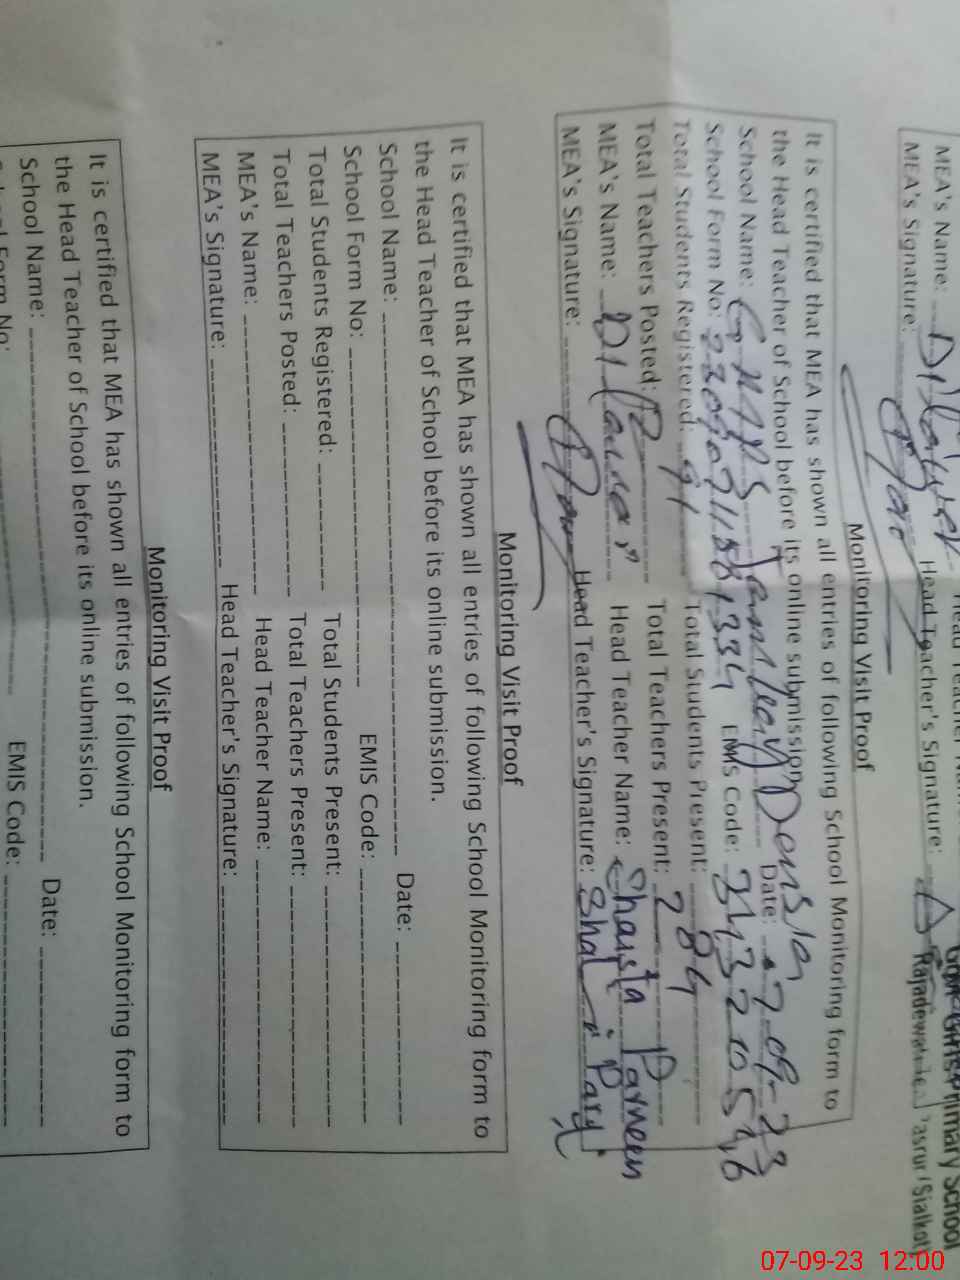 MEA's Name: Dilawer Head Teacher
MEA's Signature: Head Teacher's Signature:
Govt. Girls Primary School
Pasrur (Sialkot)
Monitoring Visit Proof
It is certified that MEA has shown all entries of following School Monitoring form to
the Head Teacher of School before its online submission.
School Name: GMPS Date: 7-09-23
School Form No: EMIS Code:
Total Students Registered: 91 Total Students Present: 84
Total Teachers Posted: 2 Total Teachers Present: 2
MEA's Name: Dilawer Head Teacher Name: Shaista Parneen
MEA's Signature: Head Teacher's Signature:
Monitoring Visit Proof
It is certified that MEA has shown all entries of following School Monitoring form to
the Head Teacher of School before its online submission.
School Name: Date:
School Form No: EMIS Code:
Total Students Registered: Total Students Present:
Total Teachers Posted: Total Teachers Present:
MEA's Name: Head Teacher Name:
MEA's Signature: Head Teacher's Signature:
Monitoring Visit Proof
It is certified that MEA has shown all entries of following School Monitoring form to
the Head Teacher of School before its online submission.
School Name: Date:
School Form No: EMIS Code:
07-09-23 12:00